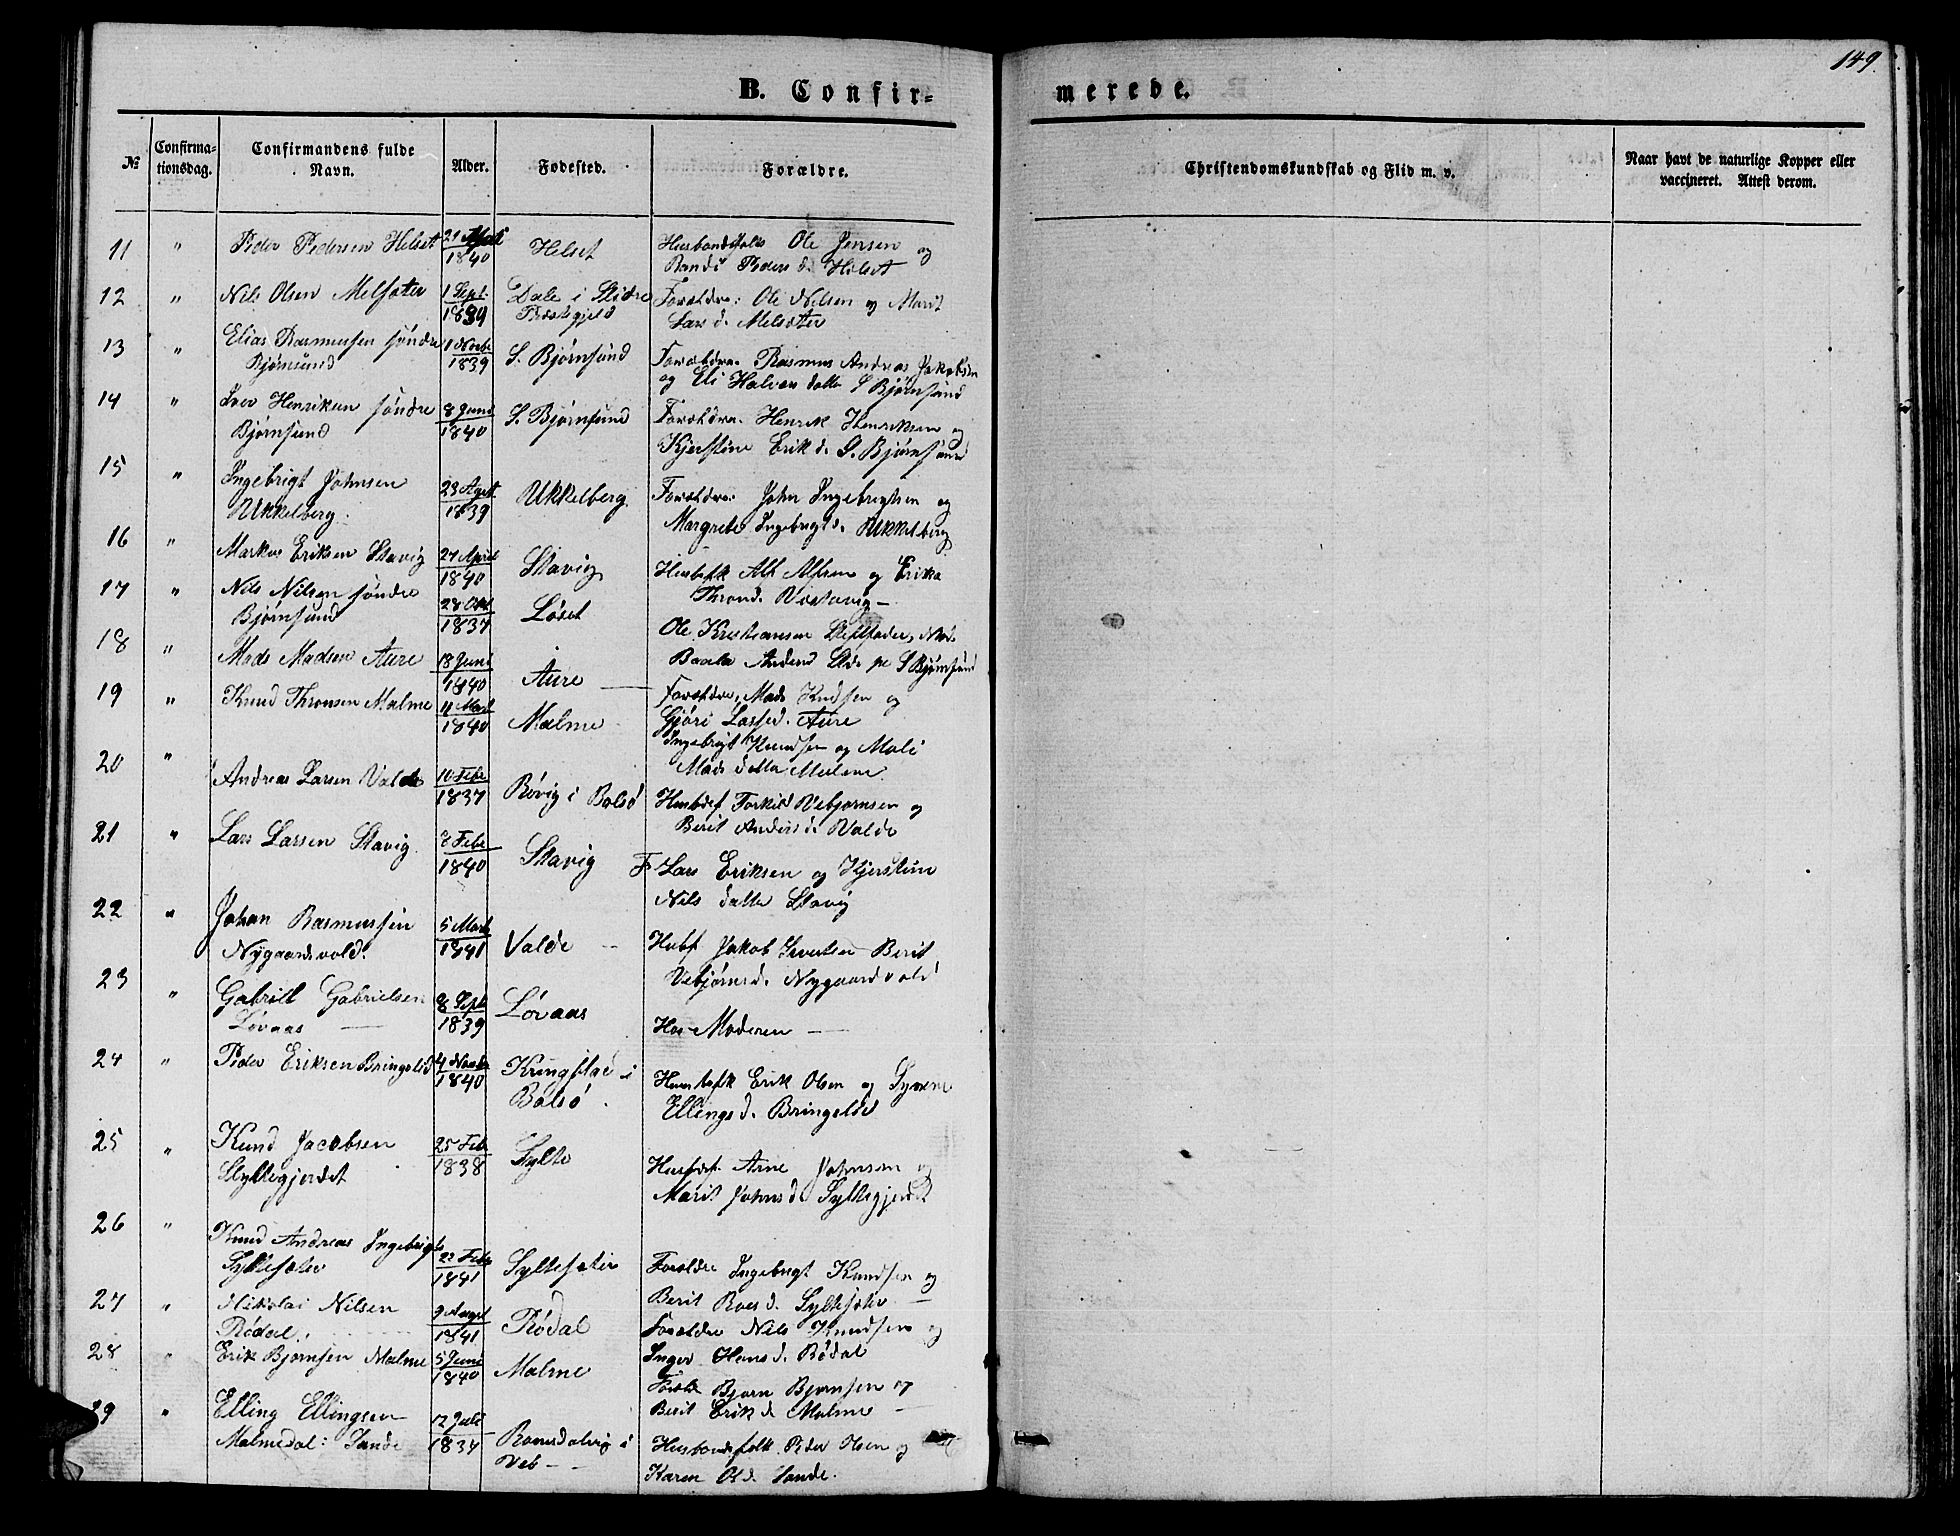 149.
B. Confir-
merede.
№
Confirma-
tionsdag.
Confirmandens fulde
Navn.
Alder.
Fødested.
Forældre.
Christendomskundskab og Flid m. v.
Naar havt de naturlige Kopper eller
vaccineret. Attest derom.
11 " Peder Pedersen Helset 1840 Helset Husbondsfolk Ole Jensen og
Randi Peders d. Helset
12 " Nils Olsen Melsæter 1 Sept. 1839 Dale i Slidre Forældre: Ole Nilsen og Marit
Præstegjeld Lars d. Melsæter
13 " Elias Rasmussen søndre 1 Novbr 1839 S. Bjørnsund Forældre. Rasmus Andreas Jakobsen
Bjørnsund og Eli Halvor datter S Bjørnsund
14 " Iver Henriksen søndre 8 Juni 1840 S. Bjørnsund Forældre. Henrik Henriksen og
Bjørnsund Kjerstine Erik d. S. Bjørnsund
15 " Ingebrigt Johnsen 23 Agst 1839 Ukkelberg. Forældre: John Ingebrigtsen og
Ukkelberg. Margrete Ingebrigt d. Ukkelberg
16 " Markus Eriksen Stavig 27 April 1840 Stavig Husbfk Alf Alfsen og Erika
Thrond d.
17 " Nils Nilsen søndre 28 Okt 1837 Løset Ole Kristiansen Stiffader,
Bjørnsund Anders d S Bjørnsund
18 " Mads Madsen Aure 18 Juni 1840 Aure — Forældre, Mads Knudsen og
Gjøri Lasse d. Aure
19 " Knud Thronsen Malme 11 Mart 1840 Malme Ingebrigt Knudsen og Mali
Mads datter Malme
20 " Andreas Larsen Valde 10 Febr 1837 Røvig i Bolsø Husbdsf Torkild Vebjørnsen og
Berit Anders d. Valde
21 " Lars Larsen Stavig. Febr 1840 Stavig F. Lars Eriksen og Kjerstine
Nils datter Stavig
22 " Johan Rasmussen 5 Mart 1841 Valde — Hubf Jakob Ivertsen Berit
Nygaardsvold. Vebjørns d. Nygaardvold
23 " Gabriel Gabrielsen 8 Sept 1839 Løvaas Hos Moderen —
Løvaas —
24 " Peder Eriksen Bringslid 4 Novbr 1840 Kringstad i Erik Olsen og Synne
Bolsø. Ellings d. Bringslid
25 " Knud Jacobsen 25 Feb 1838 Sylte Husbdsf. Arne Johnsen og
Slyttegjerdet Marit Johns d. Syltegjerdet
26 " Knud Andreas Ingebrigts 22 Febr 1841 Syltesæter Forældre Ingebrigt Knudsen og
Syltesæter Berit Roes d. Syltesæter —
27 " Nikolai Nilsen 9 August 1841 Rødal Forældre Nils Knudsen og
Rødal. Inger Hans d. Rødal
28 " Erik Bjørnsen Malme 5 Juni 1840 Malme Foræld Bjørn Bjørnsen og
Berit Erik d Malme —
29 " Elling Ellingsen 12 Juli 1837 Romsdalvig i Husbondsfolk. Peder Olsen og
Malmedal: Sande Veb — Karen Ol d. Sande.